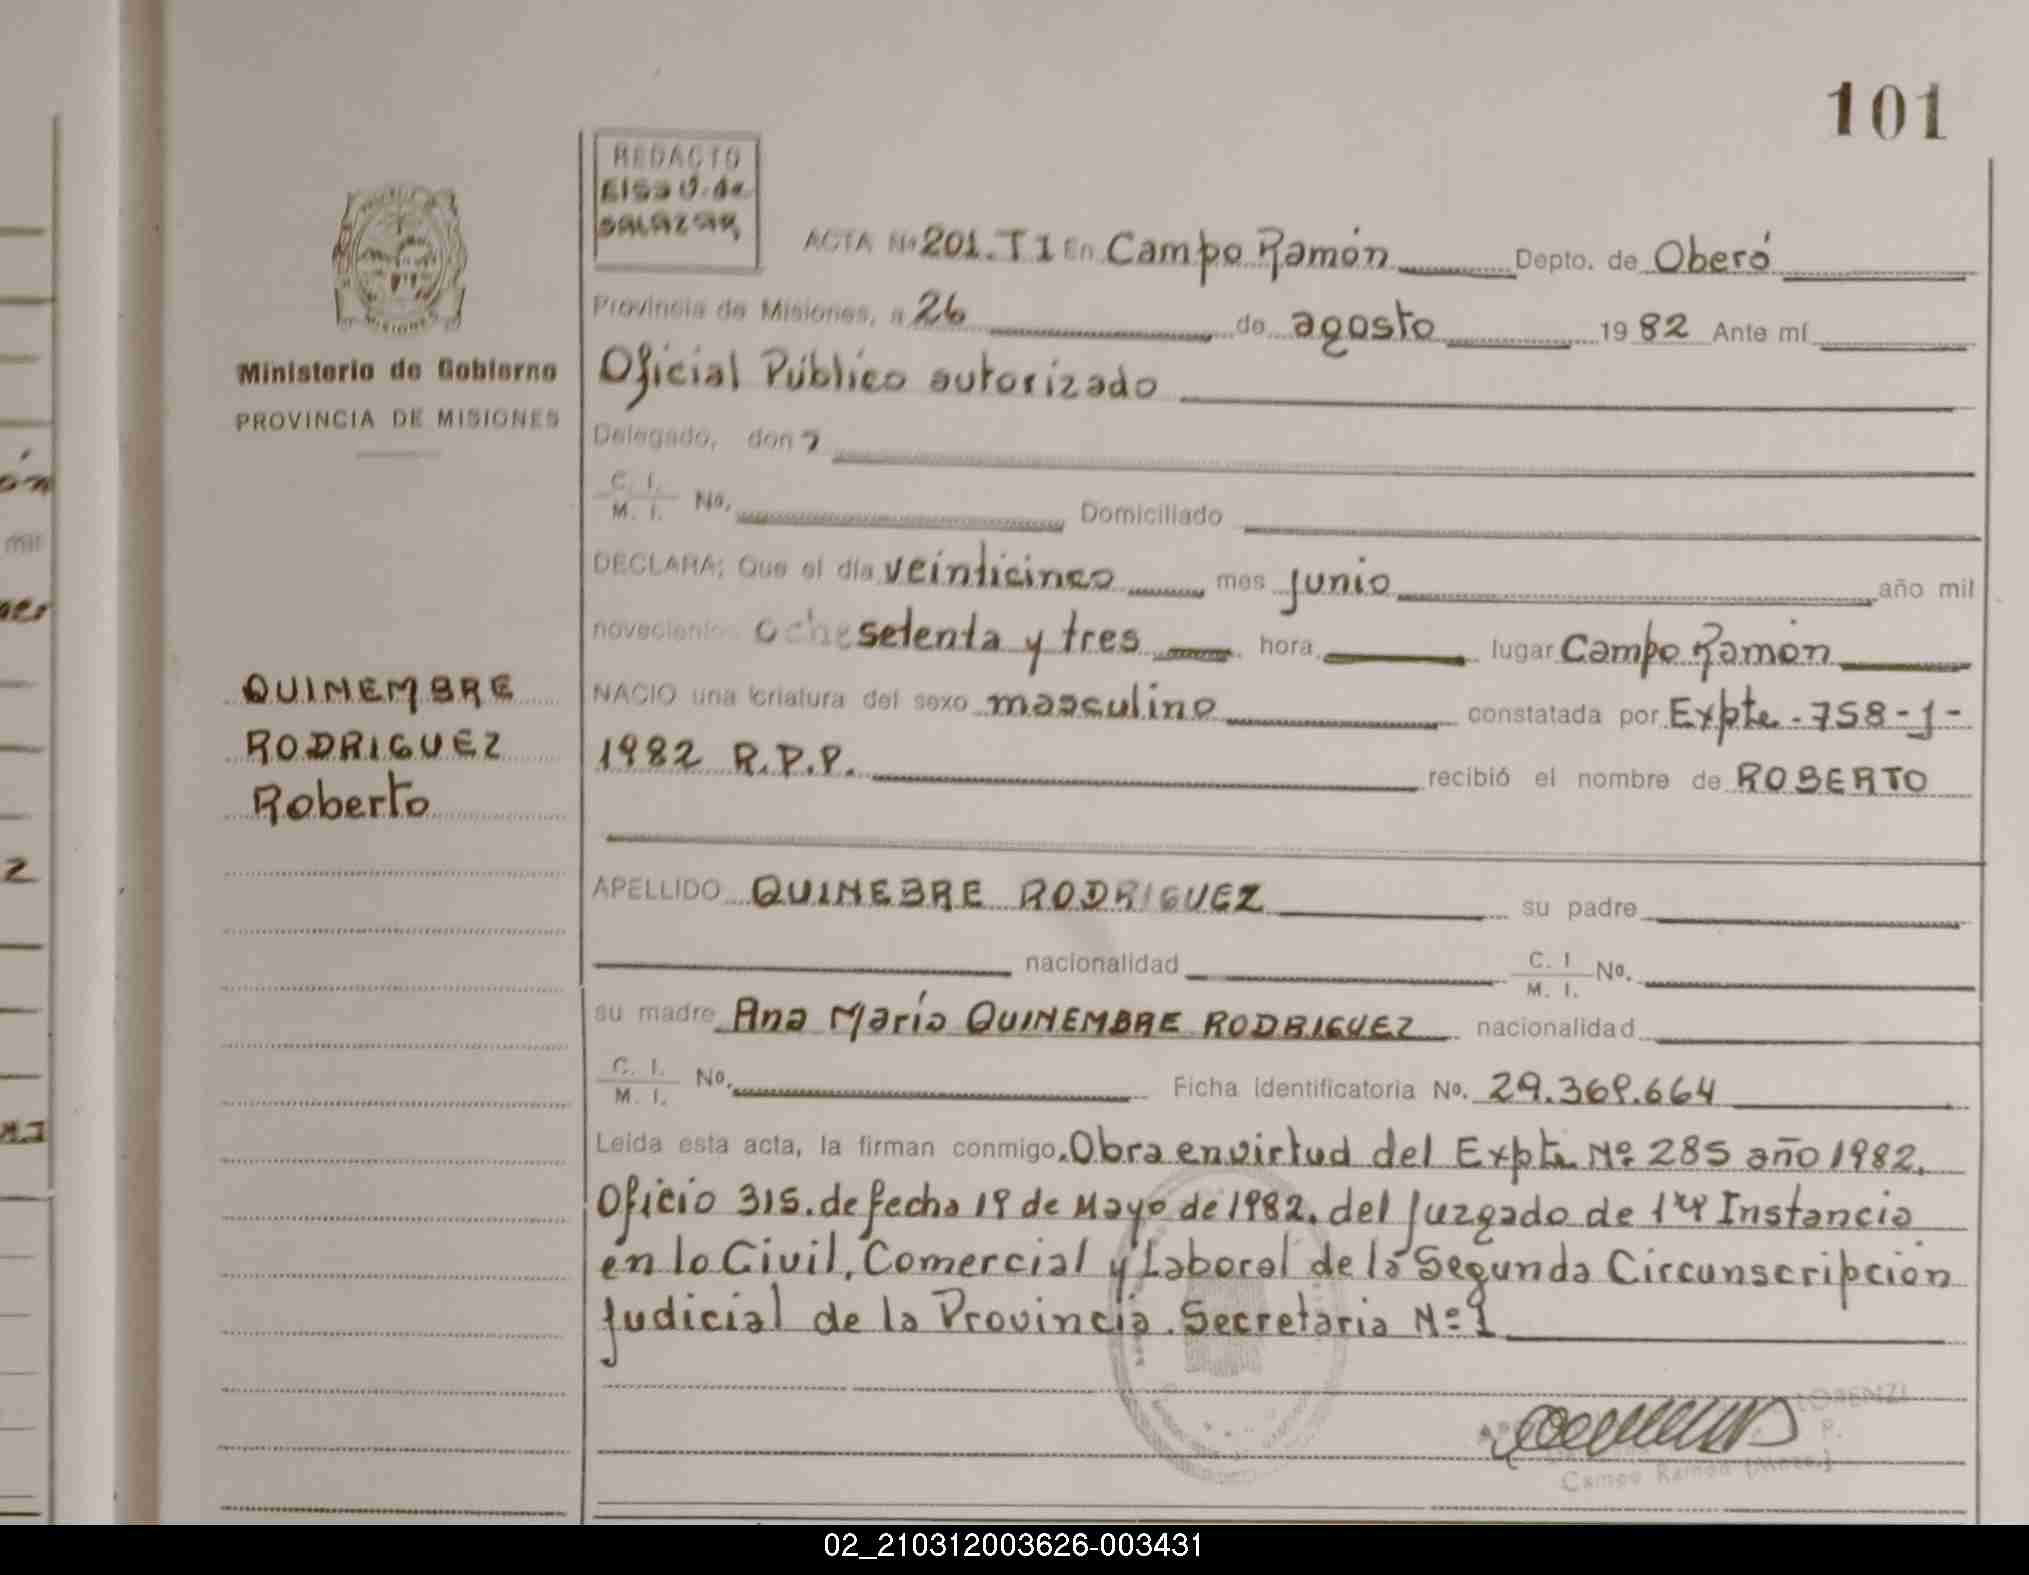 101
REDACTO
Elsa V. de
SALAZAR
ACTA Nº 201. T1 En Campo Ramón Depto. de Oberá
Provincia de Misiones, a 26 de agosto 1982 Ante mí
Oficial Público autorizado
Delegado, don
C. I. / M. I. No. Domiciliado
DECLARA: Que el día veinticinco mes junio año mil
novecientos oche setenta y tres hora lugar Campo Ramón
NACIO una criatura del sexo masculino constatada por Expte. 758-J-
1982 R.P.P. recibió el nombre de ROBERTO
APELLIDO QUINEBRE RODRIGUEZ su padre
nacionalidad C. I / M. I. No.
su madre Ana María QUINEMBRE RODRIGUEZ nacionalidad
C. I. / M. I. No. Ficha identificatoria No. 29.369.664
Leida esta acta, la firman conmigo. Obra en virtud del Expte Nº 285 año 1982.
Oficio 315. de fecha 19 de Mayo de 1982. del Juzgado de 1ra Instancia
en lo Civil, Comercial y Laboral de la Segunda Circunscripción
Judicial de la Provincia. Secretaria Nº 1
LORENZI
Campo Ramón (Mnes.)
MISIONES
Ministerio de Gobierno
PROVINCIA DE MISIONES
QUINEMBRE
RODRIGUEZ
Roberto
ón
mil
z
02_210312003626-003431